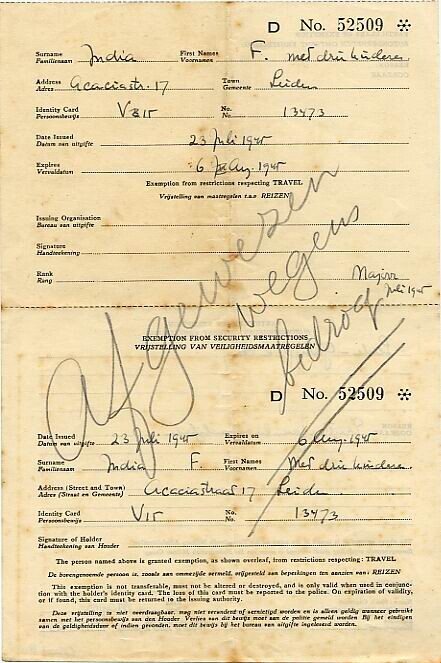 D No. 52509 ✲
Surname India First Names F. met drie kinderen
Familienaam Voornamen
Address Acaciastr. 17 Town Leiden
Adres Gemeente
Identity Card V815 No. 13473
Persoonsbewijs No.
Date Issued 23 Juli 1945
Datum van uitgifte
Expires 6 Aug. 1945
Vervaldatum
Exemption from restrictions respecting TRAVEL
Vrijstelling van maatregelen t.a.v REIZEN
Issuing Organisation
Bureau van uitgifte
Signature
Handteekening
Rank Majoor
Rang Juli 1945
afgewezen
wegens
bedrog
EXEMPTION FROM SECURITY RESTRICTIONS
VRIJSTELLING VAN VEILIGHEIDSMAATREGELEN
D No. 52509 ✲
Date Issued 23 Juli 1945 Expires on 6 Aug. 1945
Datum van uitgifte Vervaldatum
Surname India F. First Names Met drie kinderen
Familienaam Voornamen
Address (Street and Town) Acaciastraat 17 Leiden
Adres (Straat en Gemeente)
Identity Card V15 No. 13473
Persoonsbewijs No.
Signature of Holder
Handteekening van Houder
The person named above is granted exemption, as shown overleaf, from restrictions respecting: TRAVEL
De bovengenoemde persoon is, zooals aan ommezijde vermeld, vrijgesteld van beperkingen ten aanzien van: REIZEN
This exemption is not transferable, must not be altered or destroyed, and is only valid when used in conjunc-
tion with the holder's identity card. The loss of this card must be reported to the police. On expiration of validity,
or if found, this card must be returned to the issuing authority.
Deze vrijstelling is niet overdraagbaar, mag niet veranderd of vernietigd worden en is alleen geldig wanneer gebruikt
samen met het persoonsbewijs van den Houder Verlies van dit bewijs moet aan de politie gemeld worden. Bij het eindigen
van de geldigheidsduur of indien gevonden, moet dit bewijs bij het bureau van uitgifte ingeleverd worden.